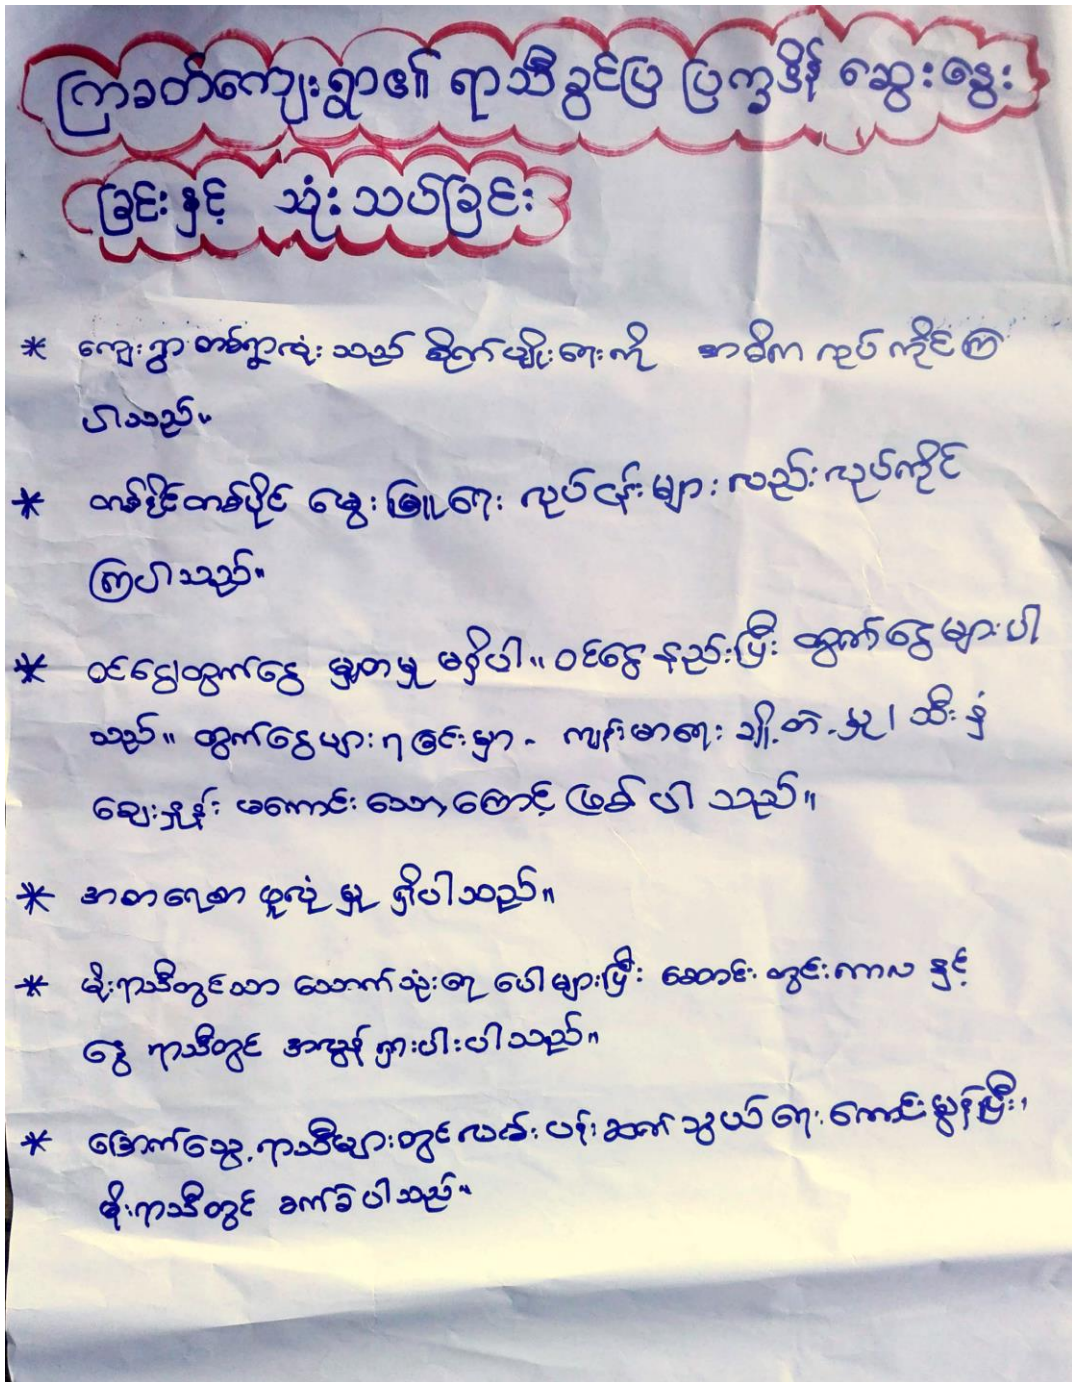 ကြာခတ်ကျေးရွာ၏ ရာသီခွင်ပြ ပြက္ခဒိန် ဆွေးနွေး
ခြင်းနှင့် သုံးသပ်ခြင်း
* ကျေးရွာတစ်ရွာလုံးသည် စိုက်ပျိုးရေးကို အဓိက လုပ်ကိုင်ကြ
ပါသည်။
* တစ်နိုင်တစ်ပိုင် မွေးမြူရေး လုပ်ငန်းများလည်းလုပ်ကိုင်
ကြပါသည်။
* ဝင်ငွေထွက်ငွေ မျှတမှု မရှိပါ။ ဝင်ငွေနည်းပြီး ထွက်ငွေများပါ
သည်။ ထွက်ငွေများရခြင်းမှာ - ကျန်းမာရေး ချို့တဲ့မှု၊ သီးနှံ
ဈေးနှုန်း မကောင်းသောကြောင့် ဖြစ်ပါသည်။
* အစာရေစာ ဖူလုံမှု ရှိပါသည်။
* မိုးရာသီတွင်သာ သောက်သုံးရေ ပေါများပြီး ဆောင်းတွင်းကာလ နှင့်
နွေ ရာသီတွင် အလွန်ရှားပါးပါသည်။
* ခြောက်သွေ့ရာသီများတွင်လမ်းပန်းဆက်သွယ်ရေးကောင်းမွန်ပြီး၊
မိုးရာသီတွင် ခက်ခဲပါသည်။